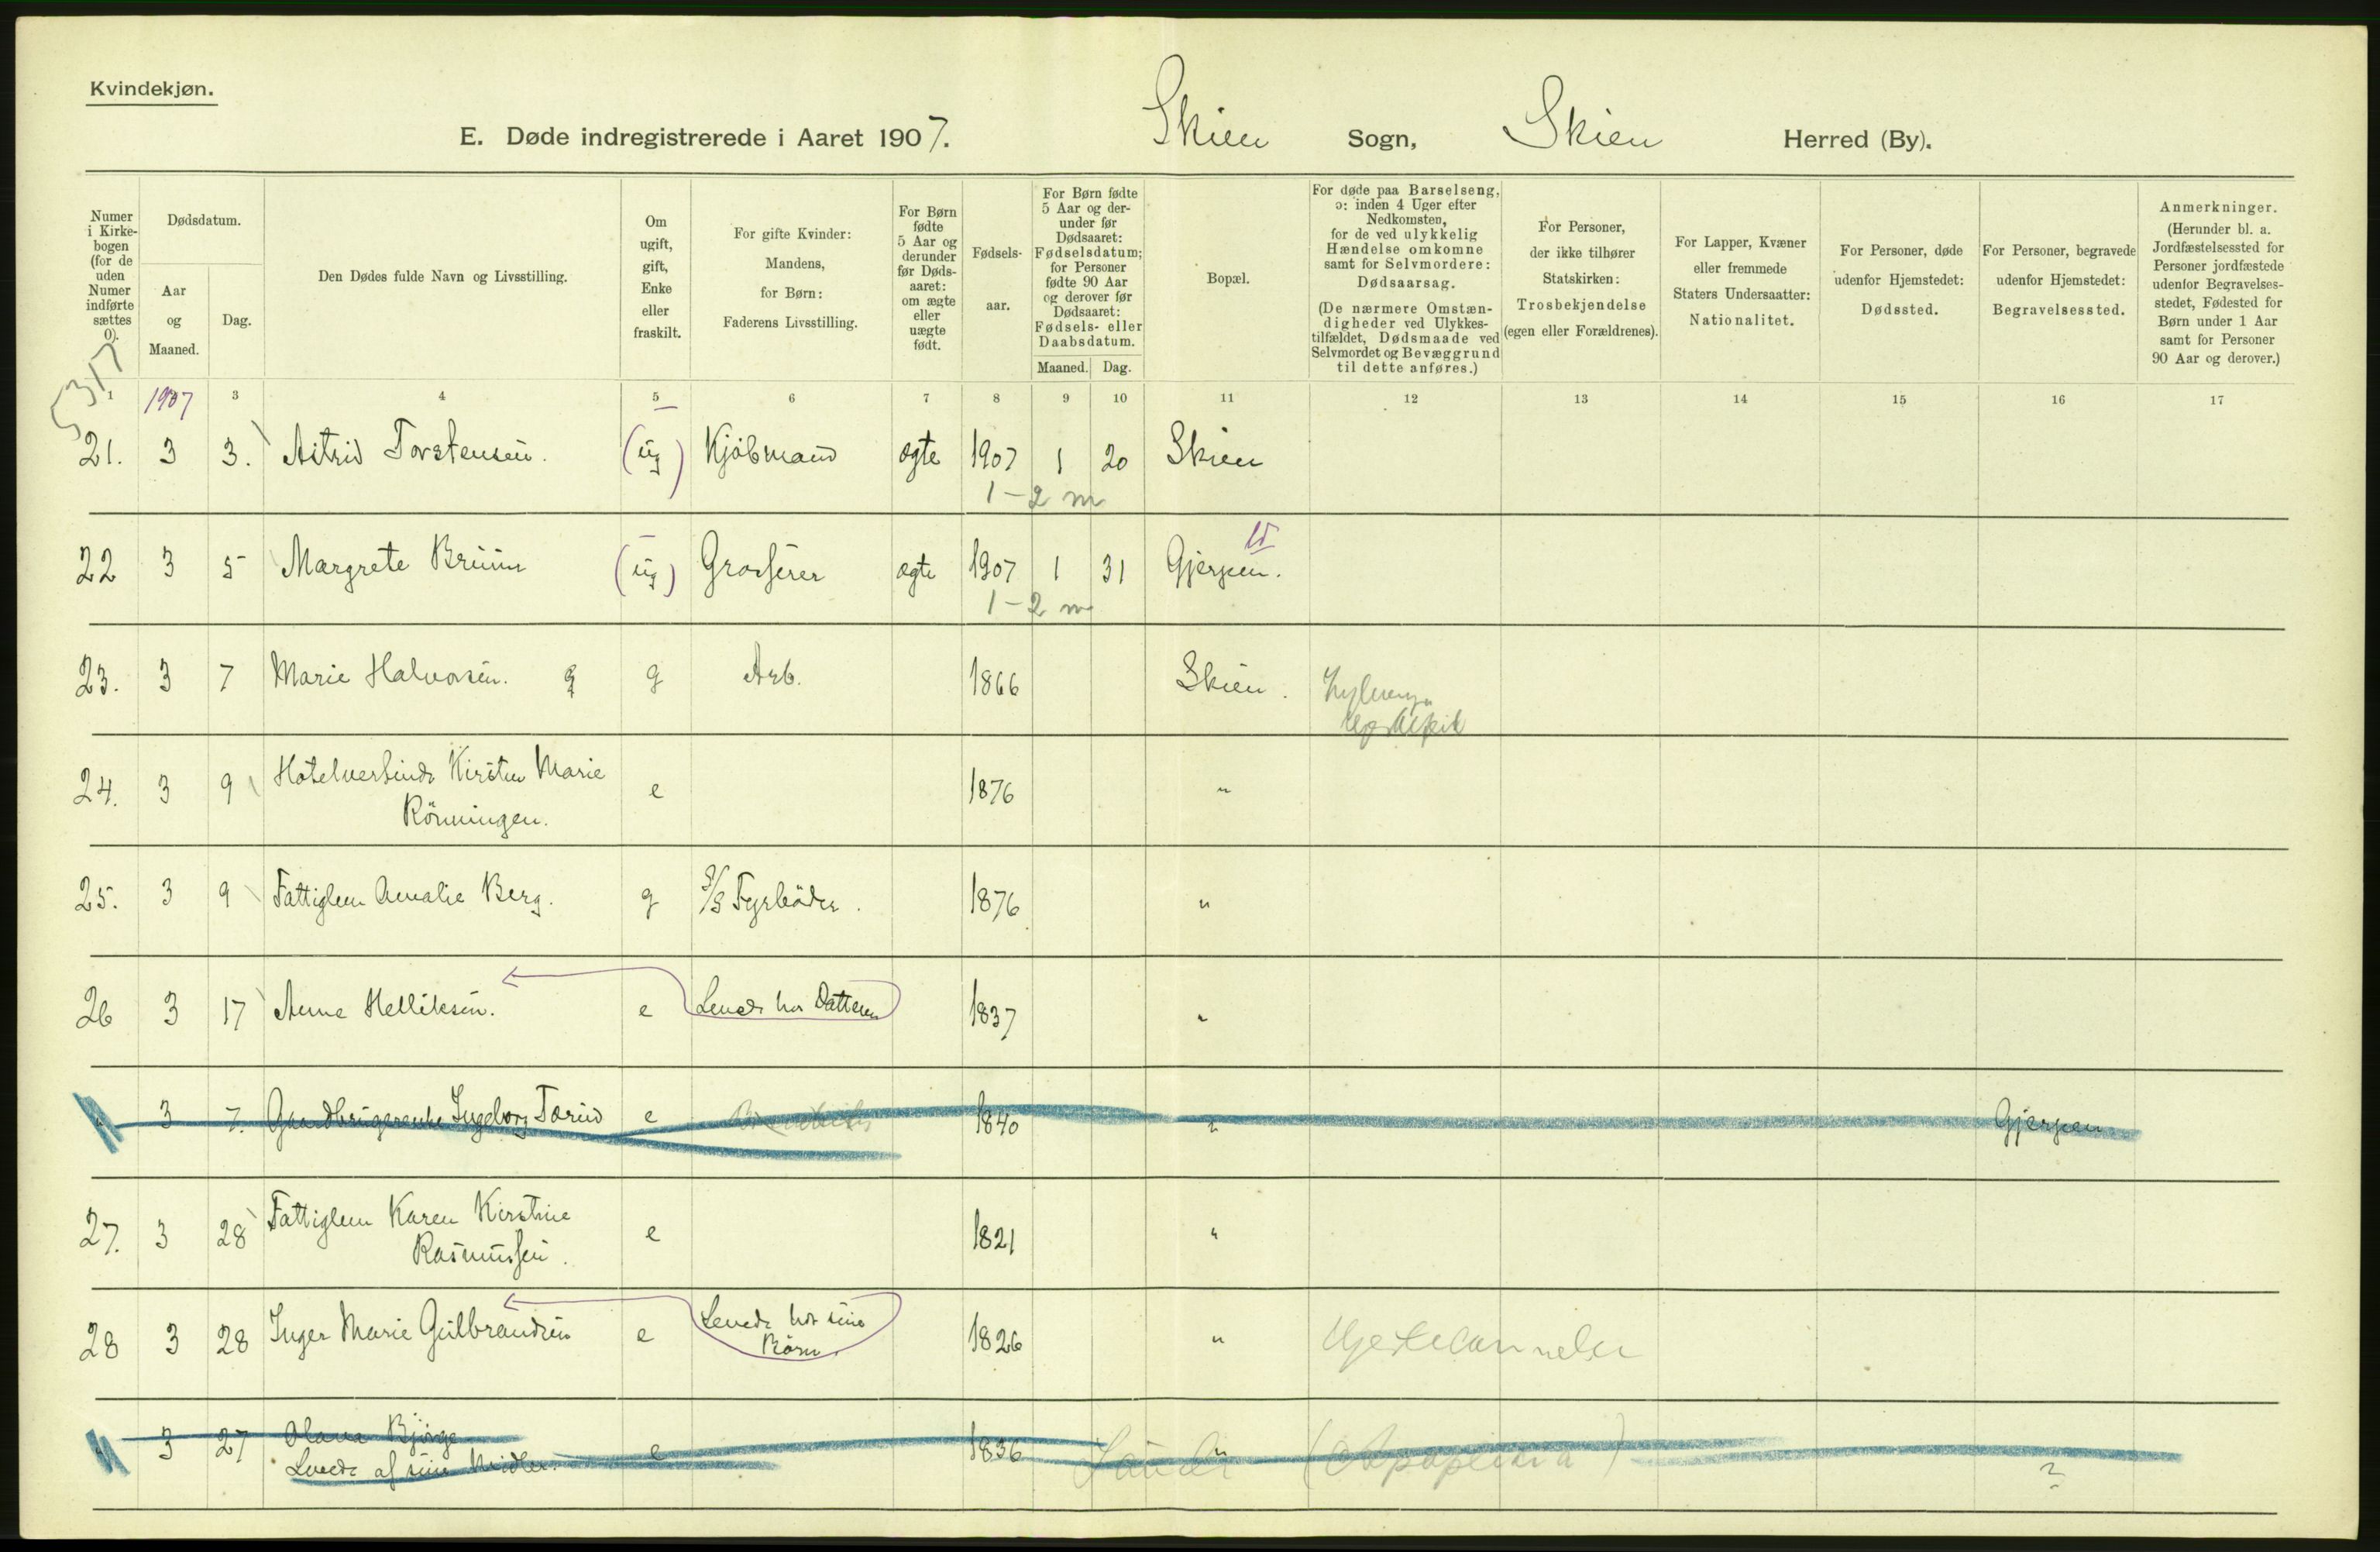 Kvindekjøn.
E. Døde indregistrerede i Aaret 1907. Skien Sogn, Skien Herred (By).
Numer i Kirke-bogen (for de uden Numer indførte sættes 0).
Dødsdatum.
Aar og Maaned.
Dag.
Den Dødes fulde Navn og Livsstilling.
Om ugift, gift, Enke eller fraskilt.
For gifte Kvinder: Mandens, for Børn: Faderens Livsstilling.
For Børn fødte 5 Aar og derunder før Døds-aaret: om ægte eller uægte født.
Fødsels-aar.
For Børn fødte 5 Aar og der-under før Dødsaaret: Fødselsdatum; for Personer fødte 90 Aar og derover før Dødsaaret: Fødsels- eller Daabsdatum.
Maaned. Dag.
Bopæl.
For døde paa Barselseng, ɔ: inden 4 Uger efter Nedkomsten, for de ved ulykkelig Hændelse omkomne samt for Selvmordere: Dødsaarsag.
(De nærmere Omstæn-digheder ved Ulykkes-tilfældet, Dødsmaade ved Selvmordet og Bevæggrund til dette anføres.)
For Personer, der ikke tilhører Statskirken: Trosbekjendelse (egen eller Forældrenes).
For Lapper, Kvæner eller fremmede Staters Undersaatter: Nationalitet.
For Personer, døde udenfor Hjemstedet: Dødssted.
For Personer, begravede udenfor Hjemstedet: Begravelsessted.
Anmerkninger. (Herunder bl. a. Jordfæstelsessted for Personer jordfæstede udenfor Begravelses-stedet, Fødested for Børn under 1 Aar samt for Personer 90 Aar og derover.)
5317
1 1907 3 4 5 6 7 8 9 10 11 12 13 14 15 16 17
21. 3 3. Astrid Torstensen. (ug) Kjøbmand ægte 1907 1 20 Skien
1-2 m
22 3 5 Margrete Bruun (ug) Grosserer ægte 1907 1 31 Gjerpen.
1-2 m
23. 3 7 Marie Halvorsen. g g Arb. 1866 Skien.
24. 3 9 Hotelvertinde Kirsten Marie
Rönningen. e 1876 "
25. 3 9 Fattiglem Amalie Berg. g Fyrböder. 1876 "
26 3 17 Anne Helliksen. e Levede hos Datteren 1837 "
" 3 7. Gaardbrugerenke Ingeborg Tærud e 1840 " Gjerpen
27. 3 28 Fattiglem Karen Kirstine
Rasmussen. e 1821 "
28 3 28 Inger Marie Gulbrandsen e Levede hos sine
Börn. 1826 "
" 3 27 Olava Bjørge
Levede af sine Midler. e 1836 " (Apoplexia)